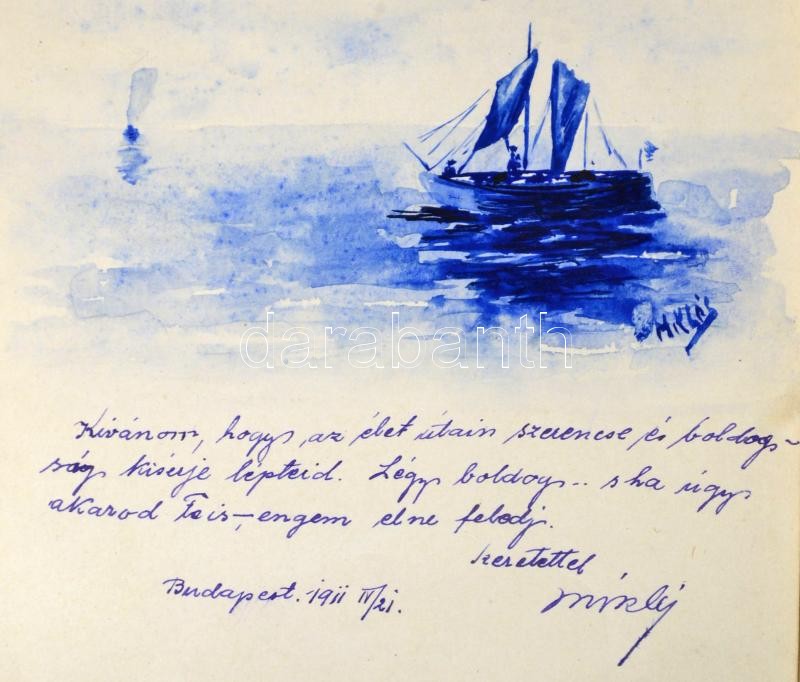 Miklós
darabanth
Kivánom, hogy az élet útain szerencse és boldog-
ság kisérje lépteid. Légy boldog.. s ha úgy
akarod Te is-, engem elne feledj.
szeretettel
Budapest. 1911 IV/21.